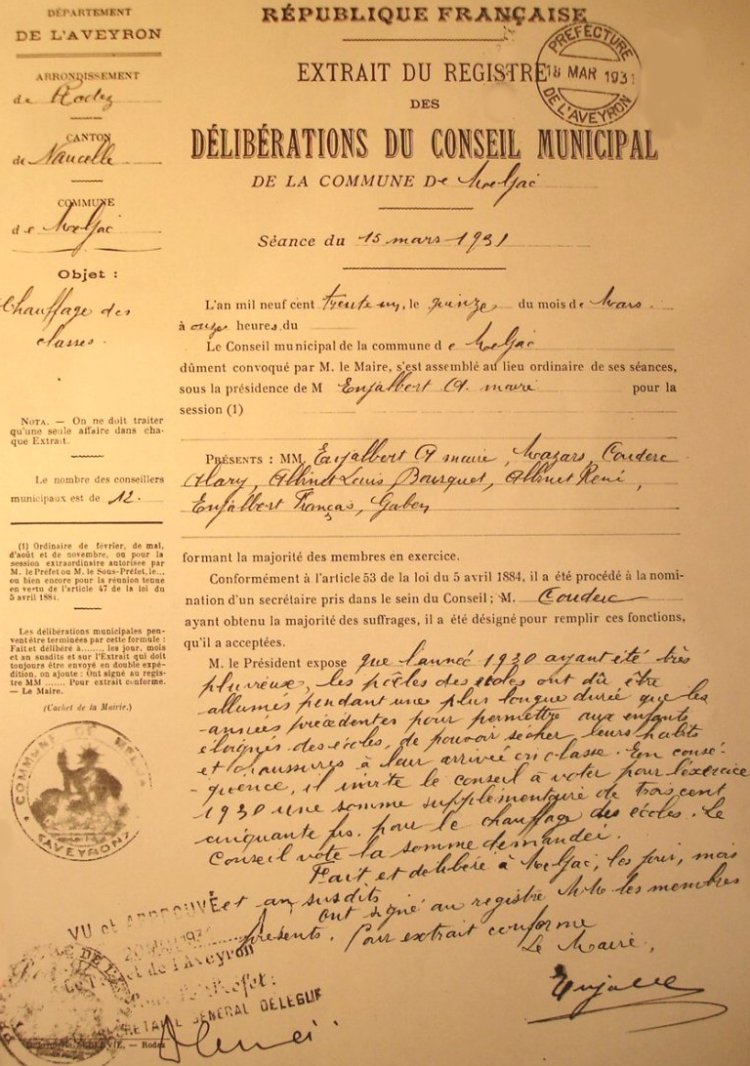 DÉPARTEMENT
DE L'AVEYRON
ARRONDISSEMENT
de Rodez
CANTON
de Naucelle
COMMUNE
de Meljac
Objet :
Chauffage des
classes.
NOTA. — On ne doit traiter
qu'une seule affaire dans cha-
que Extrait.
Le nombre des conseillers
municipaux est de 12.
(1) Ordinaire de février, de mai,
d'août et de novembre, ou pour la
session extraordinaire autorisée par
M. le Préfet ou M. le Sous-Préfet, le...,
ou bien encore pour la réunion tenue
en vertu de l'article 47 de la loi du
5 avril 1884.
Les délibérations municipales peu-
vent être terminées par cette formule :
Fait et délibéré à........ les jour, mois
et an susdits et sur l'Extrait qui doit
toujours être envoyé en double expé-
dition, on ajoute : Ont signé au regis-
tre MM ...... Pour extrait conforme.
— Le Maire.
(Cachet de la Mairie.)
COMMUNE DE MEL
(AVEYRON)
RÉPUBLIQUE FRANÇAISE
PRÉFECTURE
18 MAR 1931
DE L'AVEYRON
EXTRAIT DU REGISTRE
DES
DÉLIBÉRATIONS DU CONSEIL MUNICIPAL
DE LA COMMUNE De Meljac
Séance du 15 mars 1931
L'an mil neuf cent trente un, le quinze du mois de Mars
à onze heures du
Le Conseil municipal de la commune de Meljac
dûment convoqué par M. le Maire, s'est assemblé au lieu ordinaire de ses séances,
sous la présidence de M Enjalbert A. maire pour la
session (1)
PRÉSENTS : MM. Enjalbert A maire, Mazars, Couderc
Alary, Albinet Louis Bousquet, Albinet René,
Enjalbert François, Gaben
formant la majorité des membres en exercice.
Conformément à l'article 53 de la loi du 5 avril 1884, il a été procédé à la nomi-
nation d'un secrétaire pris dans le sein du Conseil ; M. Couderc
ayant obtenu la majorité des suffrages, il a été désigné pour remplir ces fonctions,
qu'il a acceptées.
M. le Président expose que l'année 1930 ayant été très
pluvieux, les poêles des écoles ont dû être
allumés pendant une plus longue durée que les
années précédentes pour permettre aux enfants
éloignés des écoles, de pouvoir sécher, leurs habits
et chaussures à leur arrivée en classe. En consé-
quence, il invite le conseil à voter pour l'exercice
1930 une somme supplémentaire de trois cent
cinquante frs. pour le chauffage des écoles. Le
Conseil vote la somme demandée.
Fait et délibéré à Meljac, les jour, mois
et an susdits
Ont signé au registre MM les membres
présents. Pour extrait conforme
Le Maire,
VU et APPROUVÉ
Préfet de l'Aveyron
SECRÉTAIRE GÉNÉRAL DÉLÉGUÉ
— Rodez